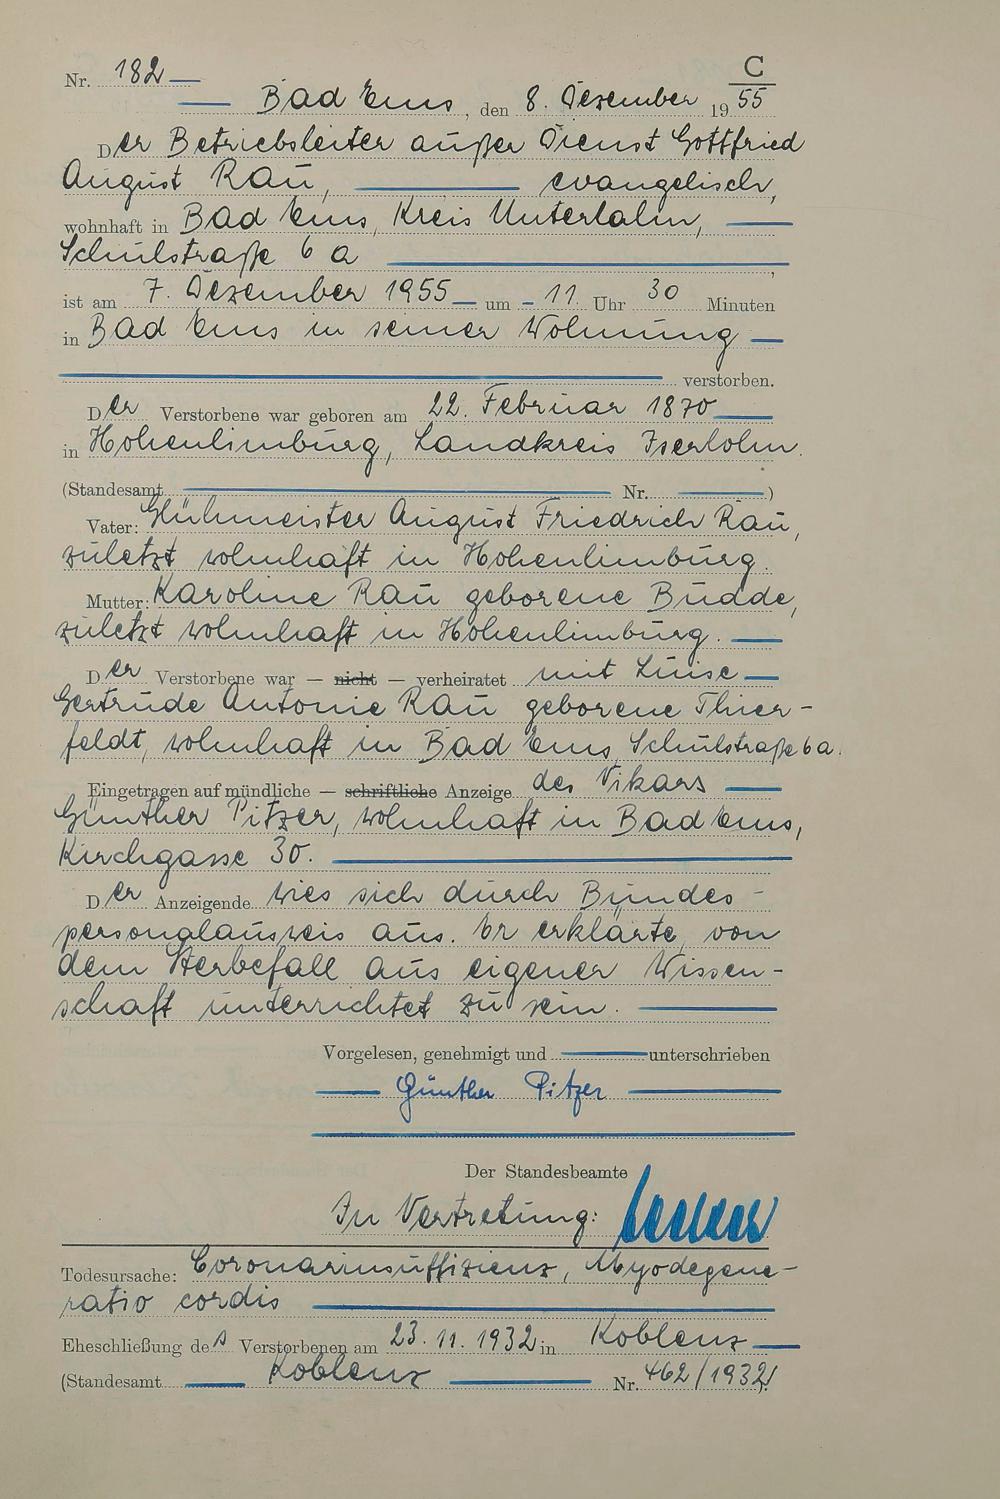 C
Nr. 182
Bad Ems, den 8. Dezember 1955
Der Betriebsleiter außer Dienst Gottfried
August Rau, evangelisch,
wohnhaft in Bad Ems, Kreis Unterlahn,
Schulstraße 6 a ,
ist am 7. Dezember 1955 um 11 Uhr 30 Minuten
in Bad Ems in seiner Wohnung
verstorben.
Der Verstorbene war geboren am 22. Februar 1870
in Hohenlimburg, Landkreis Iserlohn.
(Standesamt Nr. )
Vater: Glühmeister August Friedrich Rau,
zuletzt wohnhaft in Hohenlimburg.
Mutter: Karoline Rau geborene Budde,
zuletzt wohnhaft in Hohenlimburg.
Der Verstorbene war — nicht — verheiratet mit Luise
Gertrude Antonie Rau geborene Thier-
feldt, wohnhaft in Bad Ems, Schulstraße 6 a.
Eingetragen auf mündliche — schriftliche Anzeige des Vikars
Günther Pitzer, wohnhaft in Bad Ems,
Kirchgasse 30.
Der Anzeigende wies sich durch Bundes-
personalausweis aus. Er erklärte, von
dem Sterbefall aus eigener Wissen-
schaft unterrichtet zu sein.
Vorgelesen, genehmigt und unterschrieben
Günther Pitzer
Der Standesbeamte
In Vertretung:
Todesursache: Coronarinsuffizienz, Myodegene-
ratio cordis
Eheschließung des Verstorbenen am 23. 11. 1932 in Koblenz
(Standesamt Koblenz Nr. 462/1932)